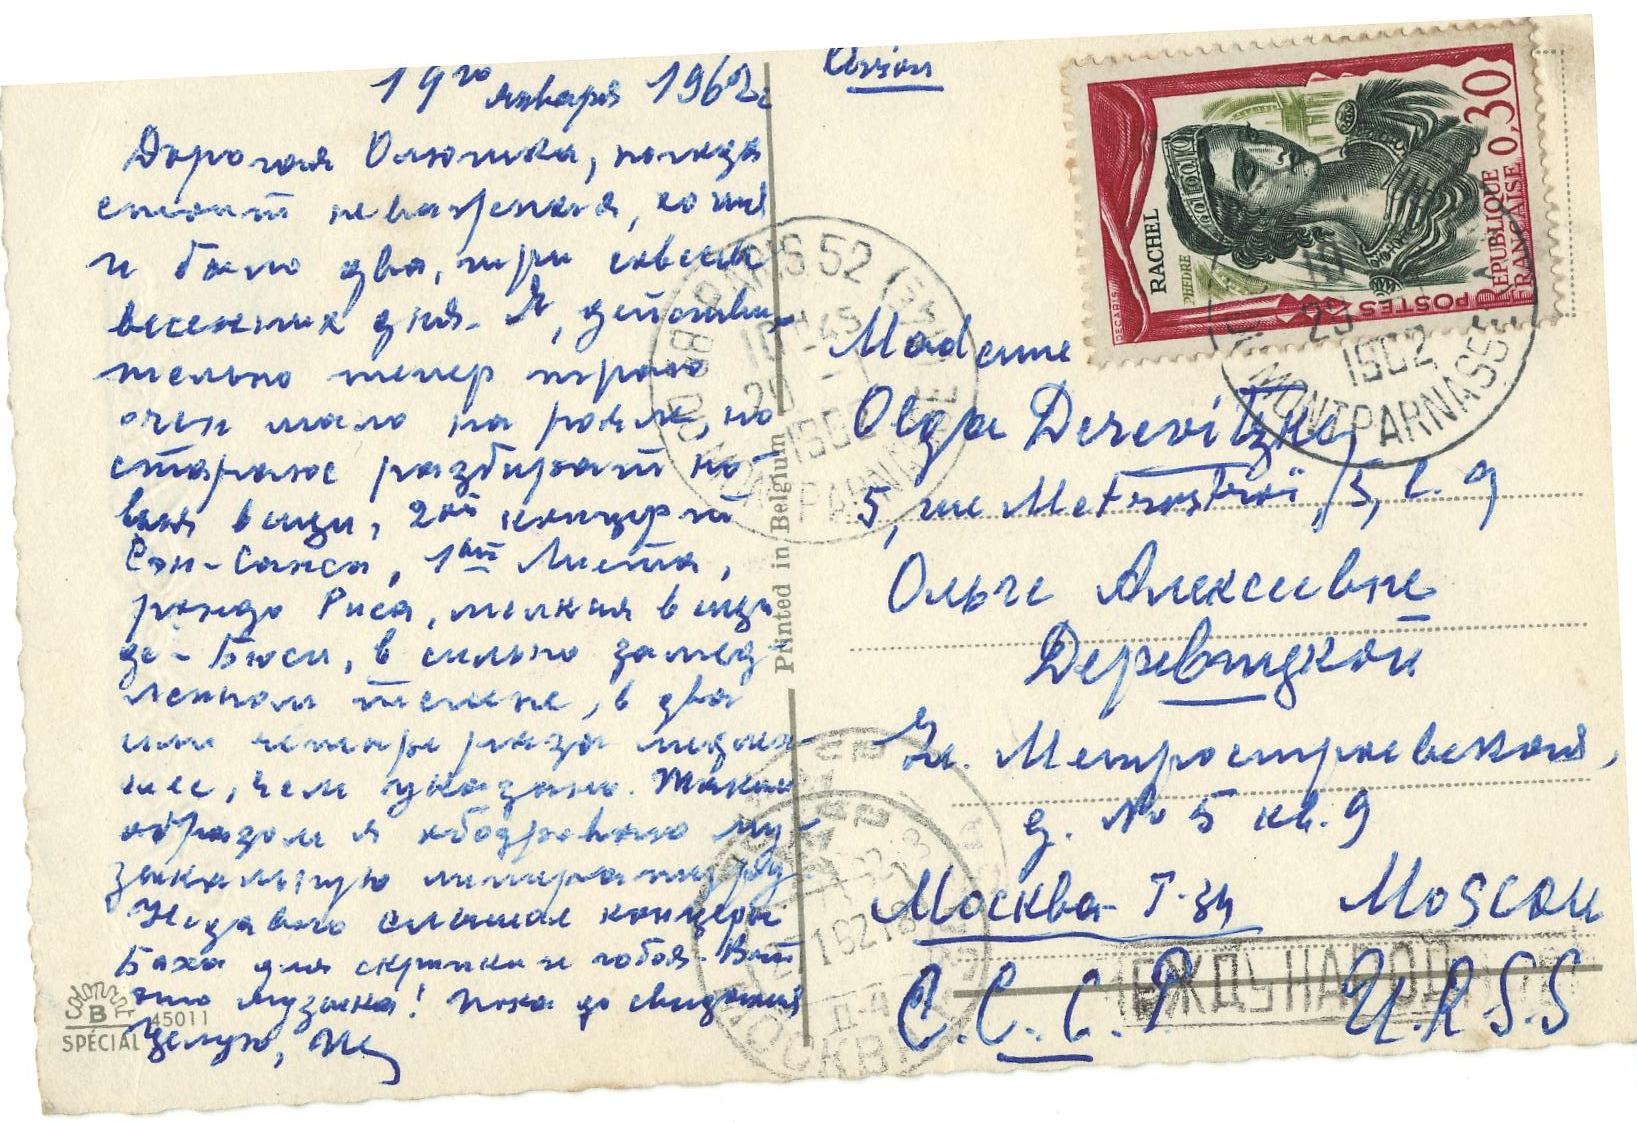 19го января 1962г
Дорогая Олюшка, погода
стоит неважная, хотя
и было два, три совсем
весенних дня. Я, действи-
тельно теперь играю
очень мало на рояле, но
стараюсь разбират но-
выя вещи, 2ой концерт
Сэн-Санса, 1ый Листа,
рондо Риса, мелкия вещи
де-Бюси, в сильно замед-
ленном темпе, в два
или четыре раза медле-
нее, чем указано. Таким
образом я обозреваю му-
зыкальную литературу.
Недавно слышал концерт
Баха для скрипки и гобоя. Вот
это музыка! Пока до свидания
Целую,
Avion
Madame
Olga Derevitzky
5, rue Metrostroï, 5, l. 9
Ольге Алексеевне
Деревицкой
Ул. Метростроевская,
д. № 5 кв. 9
Москва-Г-34 Moscou
С.С.С.Р. U.R.S.S
RACHEL
PHÈDRE
DECARIS
POSTES
RÉPUBLIQUE FRANÇAISE 0,30
PARIS 52
MONTPARNASSE
1962
МОСКВА
МЕЖДУНАРОД
Printed in Belgium
B
SPÉCIAL 45011